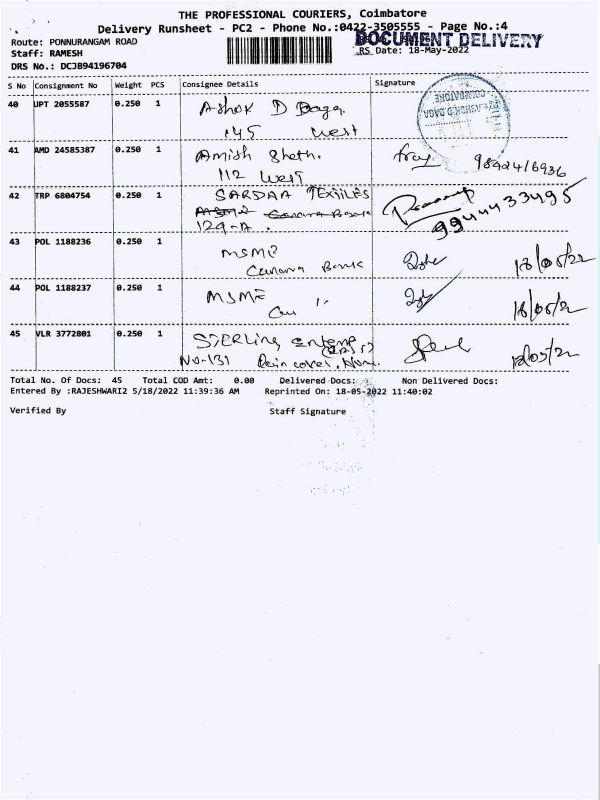 THE PROFESSIONAL COURIERS, Coimbatore
Delivery Runsheet - PC2 - Phone No.:0422-3505555 - Page No.:4
DOCUMENT DELIVERY
Route: PONNURANGAM ROAD
RS Date: 18-May-2022
Staff: RAMESH
DRS No.: DCJB94196704
S No Consignment No Weight PCS Consignee Details Signature
40 UPT 2055587 0.250 1 Ashok D Daga
145 West
COIMBATORE
ASHOK D.DAGA
41 AMD 24585387 0.250 1 Amish Sheth. 9842416936
112 West
42 TRP 6804754 0.250 1 SARDAA TEXTILES
124-A. 9944433495
43 POL 1188236 0.250 1 MSME
Canara Bank 18/05/22
44 POL 1188237 0.250 1 MSME
Can " 18/05/22
45 VLR 3772801 0.250 1 Sterling
No-131 18/05/22
Total No. Of Docs: 45 Total COD Amt: 0.00 Delivered Docs: Non Delivered Docs:
Entered By :RAJESHWARI2 5/18/2022 11:39:36 AM Reprinted On: 18-05-2022 11:40:02
Verified By Staff Signature